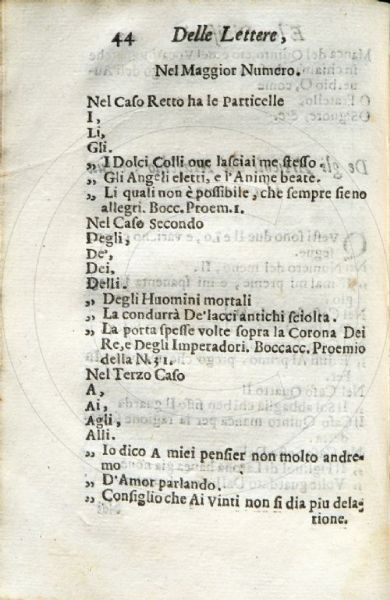 44 Delle Lettere,
Nel Maggior Numero.
Nel Caso Retto ha le Particelle
I,
Li,
Gli.
„ I Dolci Colli oue lasciai me stesso.
„ Gli Angeli eletti, e l'Anime beate.
„ Li quali non è possibile, che sempre sieno
allegri. Bocc. Proem. 1.
Nel Caso Secondo
Degli,
De',
Dei,
Delli.
„ Degli Huomini mortali
„ La condurrà De'lacci antichi sciolta.
„ La porta spesse volte sopra la Corona Dei
Re, e Degli Imperadori. Boccacc. Proemio
della N. 31.
Nel Terzo Caso
A,
Ai,
Agli,
Alli.
„ Io dico A miei pensier non molto andre-
mo
„ D'Amor parlando.
„ Consiglio che Ai Vinti non si dia piu dela-
tione.